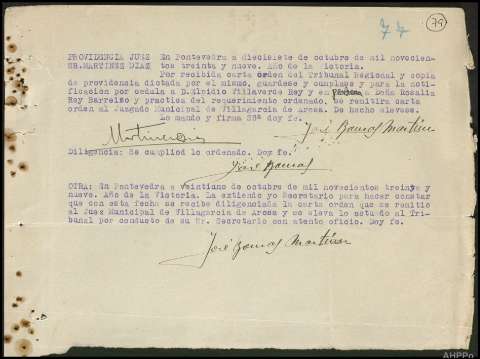 77
79
PROVIDENCIA JUEZ En Pontevedra a diecisiete de octubre de mil novecien-
SR.MARTINEZ DIAZ tos treinta y nueve. Año de la Victoria.
Por recibida carta orden del Tribunal Regional y copia
de providencia dictada por el mismo, guardese y cumplase y para la noti-
ficacion por cedula a D. Villaverde Rey y en persona a Doña Rosalia
Rey Barreiro y practica del requerimiento ordenado, se remitira carta
orden al Juzgado Municipal de Villagarcia de Arosa. De hecho elevese.
Lo mando y firma SSª doy fe.
Martinez Diaz
José Ramos Martínez
Diligencia: Se cumplio lo ordenado. Doy fe.
José Ramos
OTRA: En Pontevedra a veintiuno de octubre de mil novecientos treinta y
nueve. Año de la Victoria. La extiendo yo Secretario para hacer constar
que con esta fecha se recibe diligenciada la carta orden que se remitió
al Juez Municipal de Villagarcia de Arosa y se eleva lo actuado al Tri-
bunal por conducto de su Sr. Secretario con atento oficio. Doy fe.
José Ramos Martínez
AHPPo